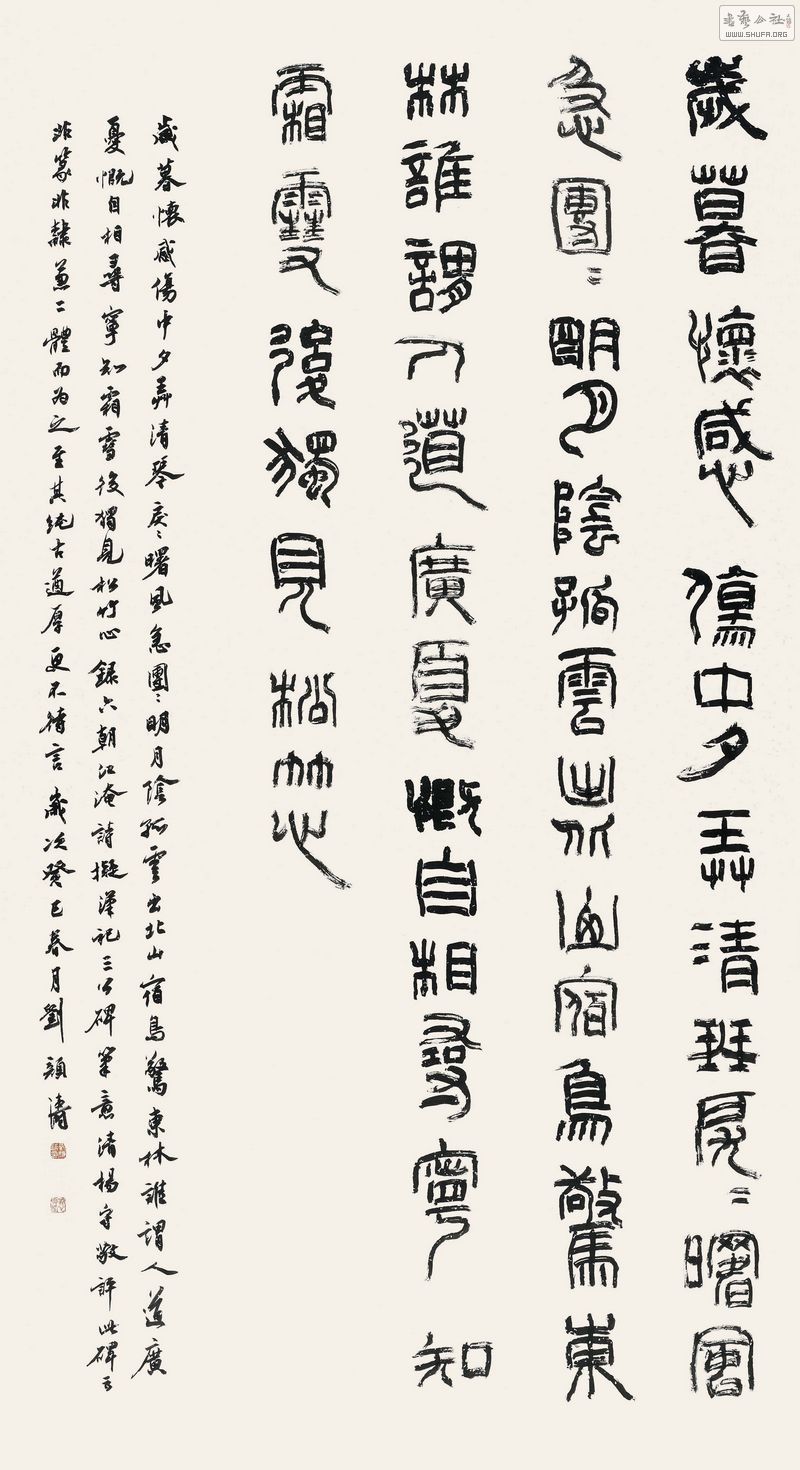 歲暮懷感傷中夕弄清琴戾〻曙風
急團〻明月陰孤雲出北山宿鳥驚東
林誰謂人道廣憂慨自相尋寧知
霜雪後獨見松竹心
歲暮懷感傷中夕弄清琴戾〻曙風急團〻明月陰孤雲出北山宿鳥驚東林誰謂人道廣
憂慨自相尋寧知霜雪後獨見松竹心錄六朝江淹詩擬漢祀三公碑筆意清楊守敬評此碑云
非篆非隸兼二體而為之至其純古遒厚更不待言歲次癸巳春月劉顏濤
WWW.SHUFA.ORG